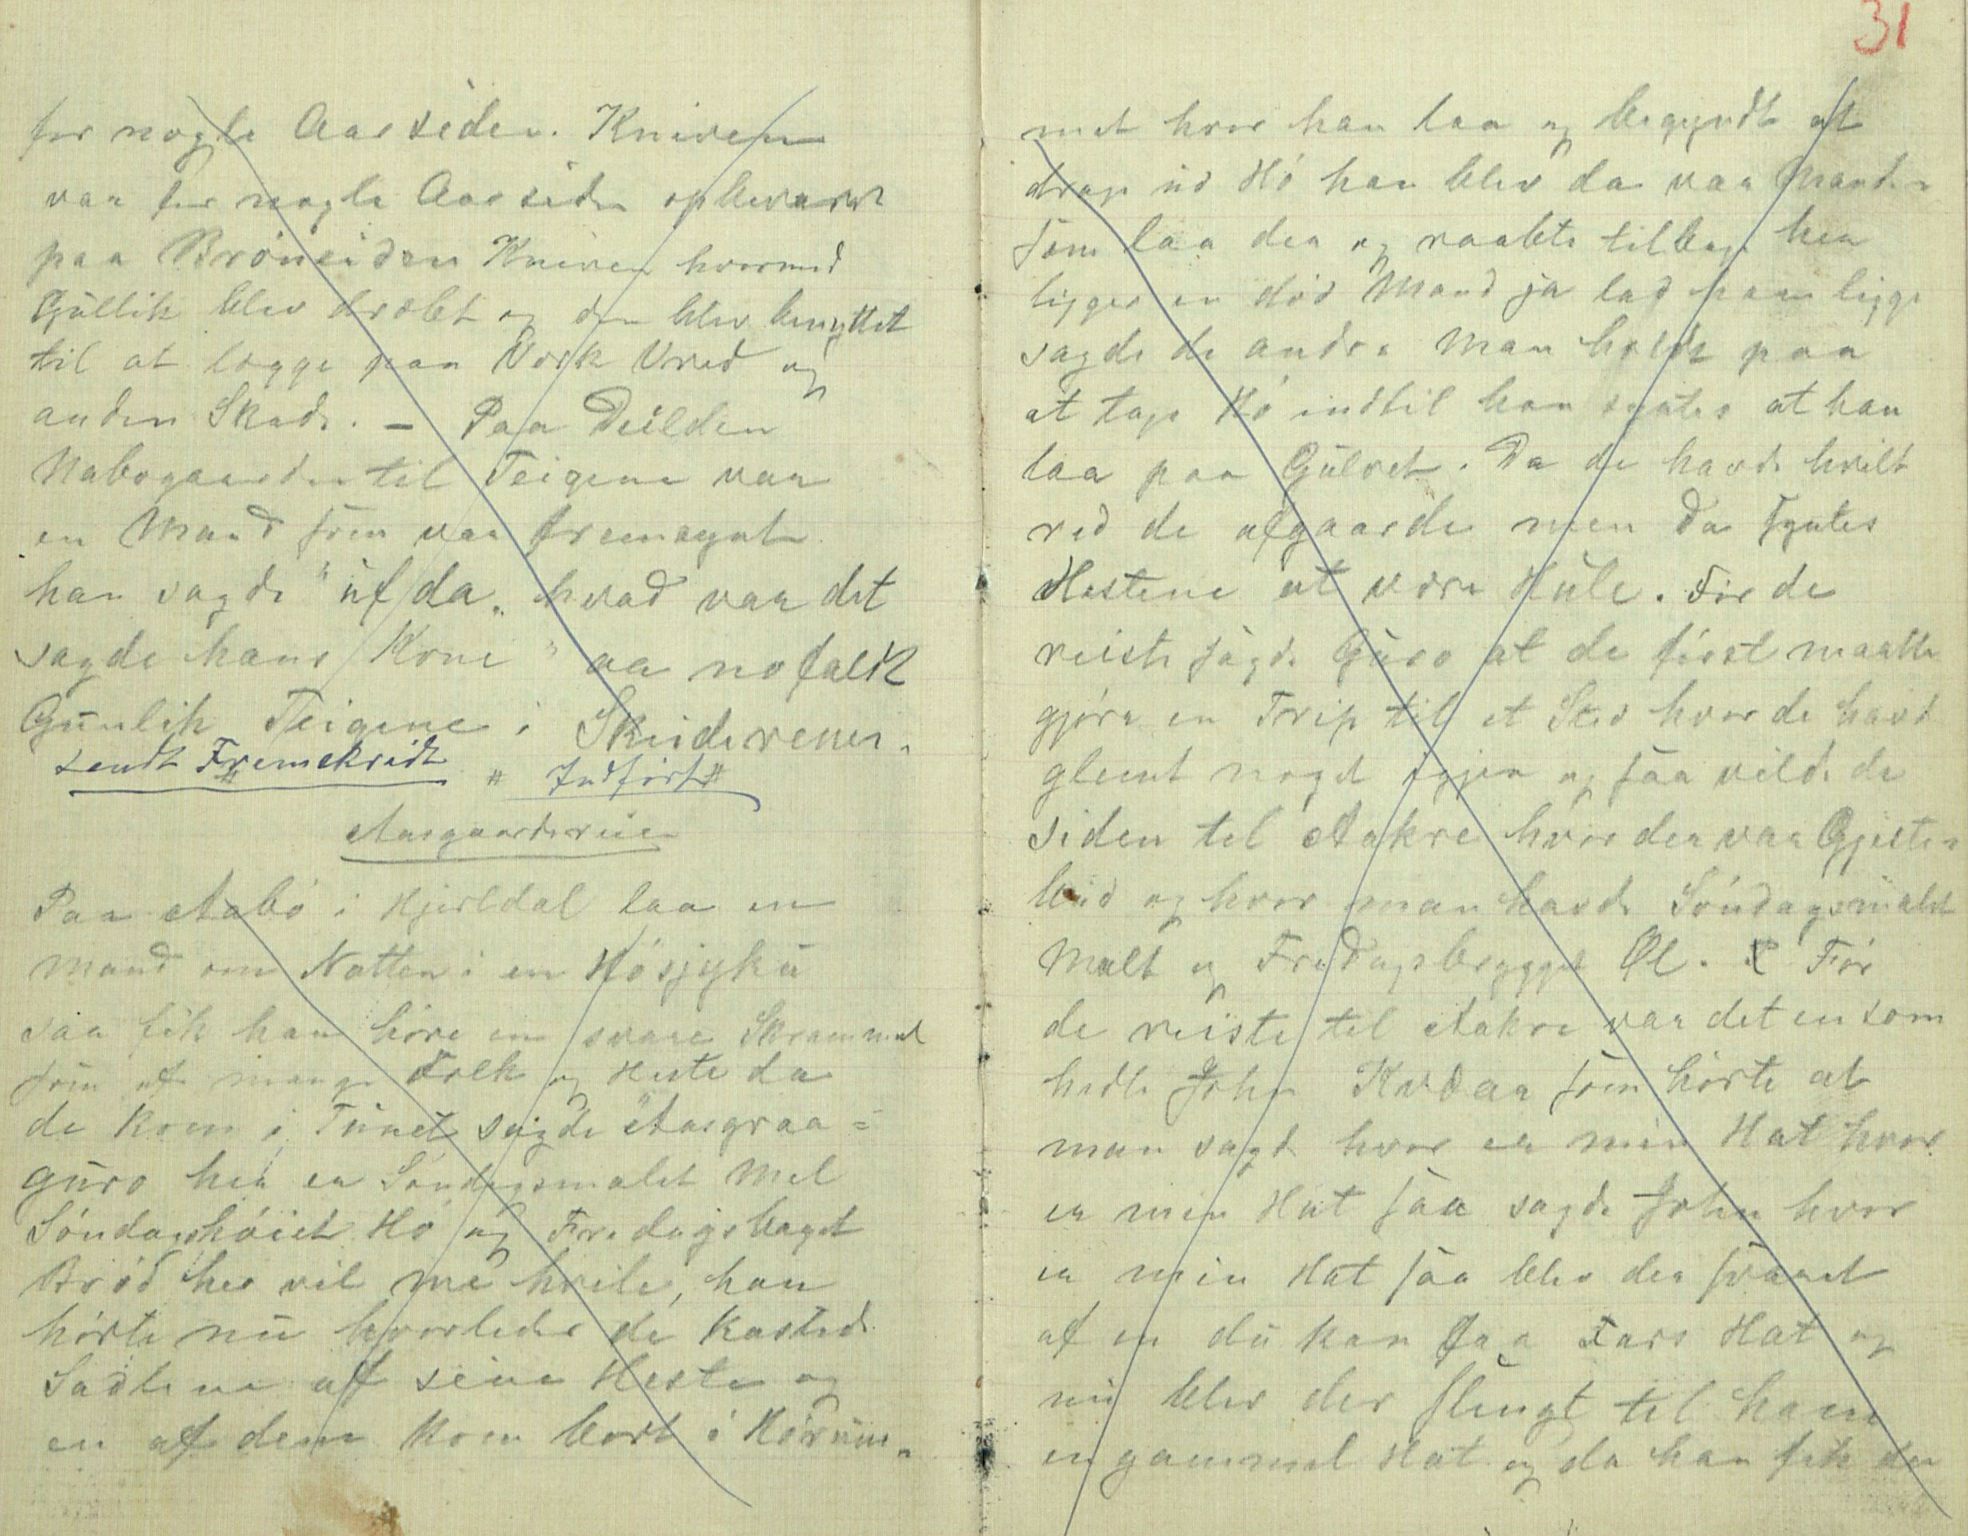 for nogle Aar siden. Kniven
var for nogle Aar siden opbevaret
paa Bröneiden Kniven hvormed
Gullik blev dræbt og den blev benyttet
til at lægge paa Værk Vred og
anden Skade. – Paa Deilden
Nabogaarden til Teigene var
en Mand som var fremsynt
han sagde "uf da" hvad var det
sagde hans Kone " va no faldt
Gunlik Teigene i Skeidereuen.
sendt Fremskridt " Indført "
Aasgaardsreien
Paa Aabø i Hjerldal laa en
mand om Natten i en Hó
saa fik han höre en svare Skrammel
som af mange Folk og Heste da
de kom i Tunet sagde "Aasgraa=
guro her er Søndagsmalet Mel
Søndagshöiet Hó og Fredagsbaget
Bröd her vil me hvile, han
hörte nu hvorledes de kastede
Sadlene af sine Heste og
en af dem kom bort i Hórum-
31
met hvor han laa og begyndte at
drage ud Hó han blev da var Manden
som laa der og raabte tilbage her
ligger en död Mand ja lad ham ligge
sagde de andre Man holdt paa
at tage Hó indtil han syntes at han
laa paa Gulvet. Da de havde hvilt
red de afgaarde men da syntes
Hestene at være Hule. Før de
reiste sagde Guro at de först maatte
gjöre en Trip til et Sted hvor de havde
glemt noget igjen og saa vilde de
siden til Aakre hvor der var Gjeste-
bud og hvor man havde Söndagsmalet
Malt og Fredagsbrygget Øl. För
de reiste til Aakre var det en som
hedte John Kvdaa som hörte at
man sagde hvor er min Hat hvor
er min Hat saa sagde John hvor
er min Hat saa blev der svaret
af en du kan faa Fars Hat og
nu blev der slengt til ham
en gammel Hat og da han fik den